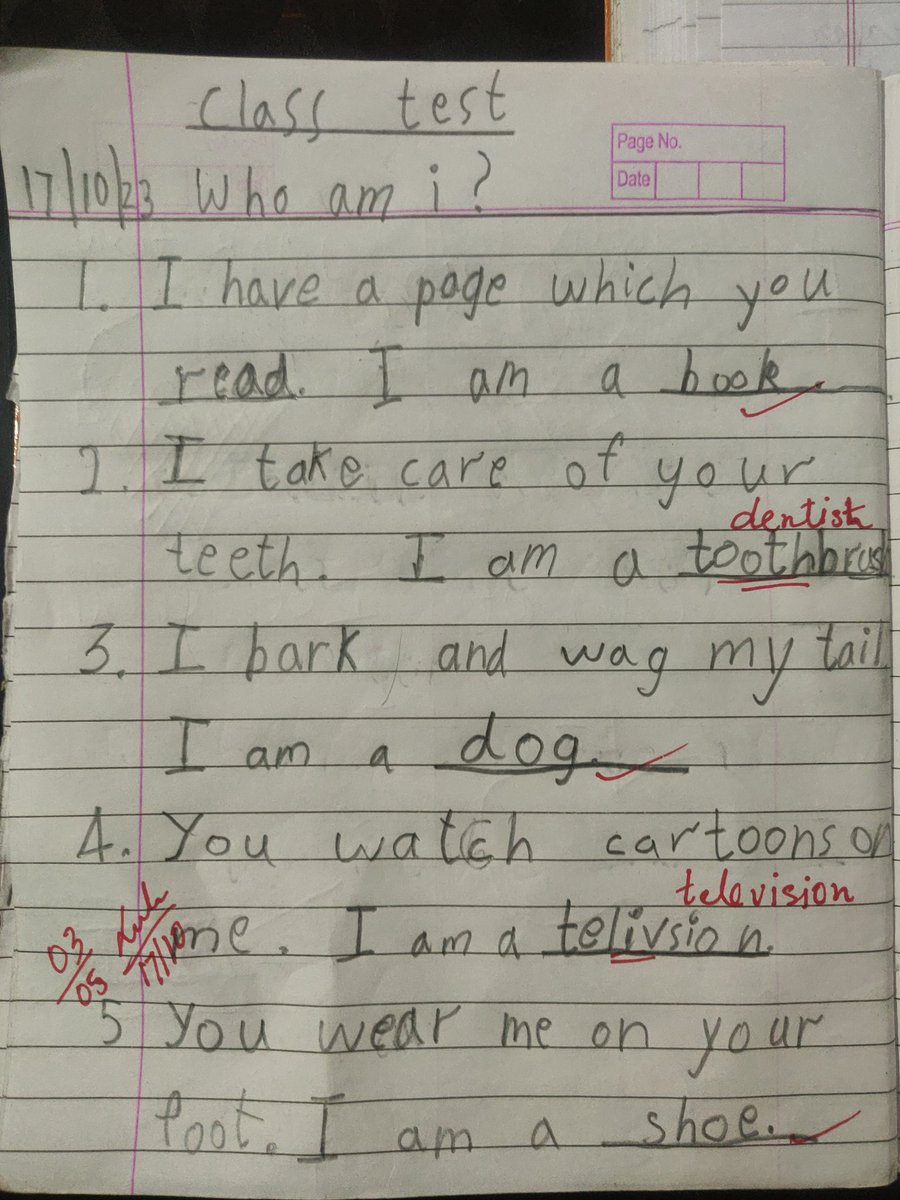 Class test
Page No.
Date
17/10/23 Who am i?
1. I have a page which you
read. I am a book
2. I take care of your
dentist
teeth. I am a toothbrush
3. I bark and wag my tail
I am a dog.
4. You watch cartoons on
television
me. I am a telivsion.
03/05
17/10
5 You wear me on your
foot. I am a shoe.